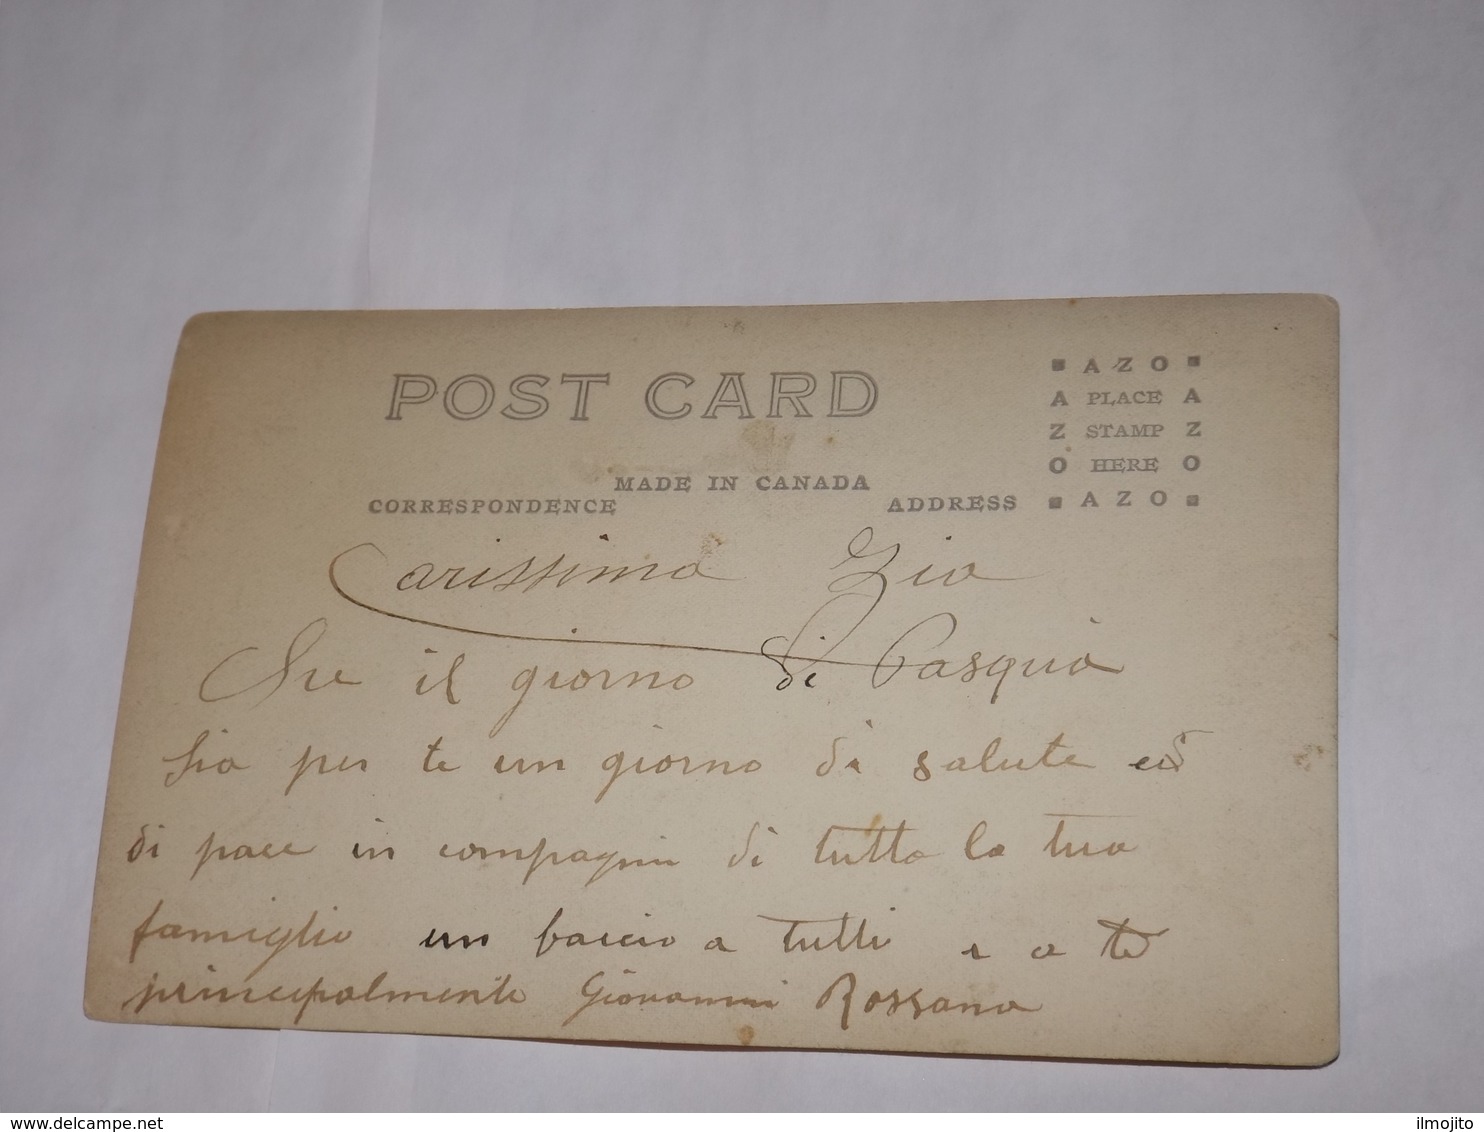 POST CARD
AZO
A PLACE A
Z STAMP Z
O HERE O
AZO
MADE IN CANADA
CORRESPONDENCE
ADDRESS
Carissima Zia
Che il giorno di Pasqua
sia per te un giorno di salute ed
di pace in compagni di tutta la tua
famiglia un baccio a tutti e a te
principalmente Giovanni Rossana
delcampe.net
ilmojito